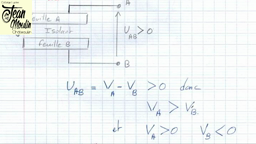 Jean
Moulin
A
Feuille A
Isolant
Feuille B
U_AB > 0
B
U_AB = V_A - V_B > 0 donc
V_A > V_B
et V_A > 0 V_B < 0